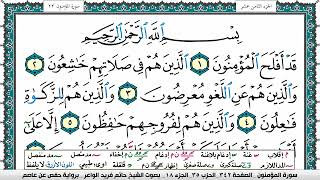 سورة المؤمنون ٢٣
الجزء الثامن عشر
بِسْمِ ٱللَّهِ ٱلرَّحْمَٰنِ ٱلرَّحِيمِ
قَدْ أَفْلَحَ ٱلْمُؤْمِنُونَ ١ ٱلَّذِينَ هُمْ فِى صَلَاتِهِمْ خَٰشِعُونَ ٢
وَٱلَّذِينَ هُمْ عَنِ ٱللَّغْوِ مُعْرِضُونَ ٣ وَٱلَّذِينَ هُمْ لِلزَّكَوٰةِ
فَٰعِلُونَ ٤ وَٱلَّذِينَ هُمْ لِفُرُوجِهِمْ حَٰفِظُونَ ٥ إِلَّا عَلَىٰٓ
سورة المؤمنون الصفحة ٣٤٢ الحزب ٣٥ الجزء ١٨ بصوت الشيخ حاتم فريد الواعر برواية حفص عن عاصم